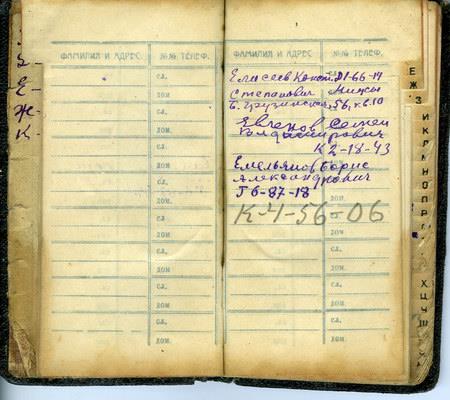 З-
Е-
Ж-
К-
ФАМИЛИЯ И АДРЕС №№ ТЕЛЕФ.
СЛ.
ДОМ.
СЛ.
ДОМ.
СЛ.
ДОМ.
СЛ.
ДОМ.
СЛ.
ДОМ.
СЛ.
ДОМ.
СЛ.
ДОМ.
СЛ.
ДОМ.
ФАМИЛИЯ И АДРЕС №№ ТЕЛЕФ.
Елисеев Конст. 21-66-14
Степанович
Б. Грузинская, 56, к. 10
Евгенов Семен
Владимирович
К 2-18-43
Емельянов Борис
Александрович
Г 6-87-18
К-4-56-06
СЛ.
ДОМ.
СЛ.
ДОМ.
СЛ.
ДОМ.
СЛ.
ДОМ.
Е
Ж
З
И
К
Л
М
Н
О
П
Р
Х
Ц
Ч
Ш